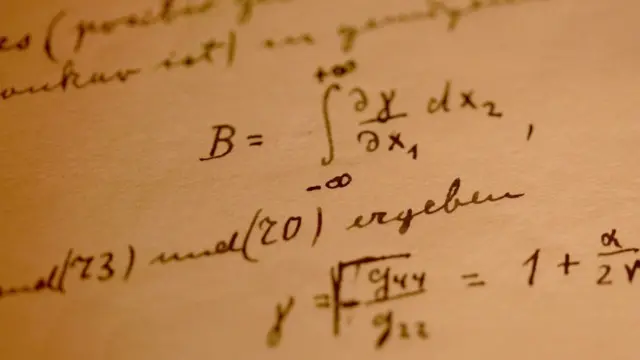 es (positiv ge
onkav ist) in genügen
B = ∫_{-∞}^{+∞} ∂γ/∂x₁ dx₂ ,
nd (73) und (70) ergeben
γ = √(-g₄₄/g₂₂) = 1 + α/2r